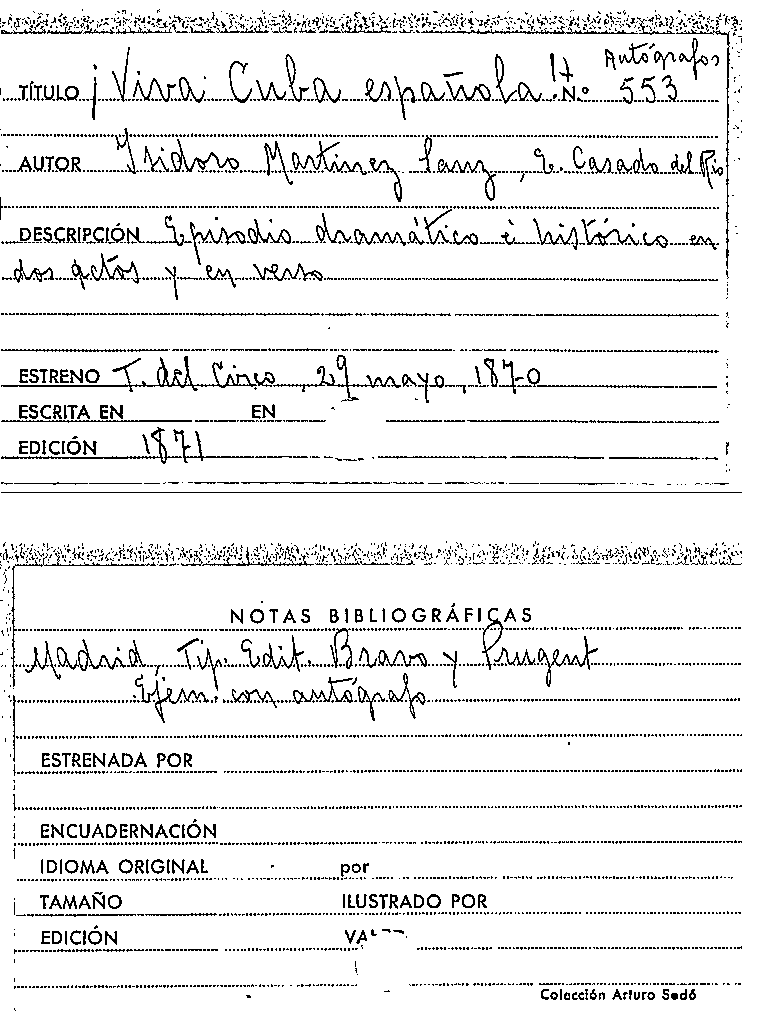 Autógrafos
TÍTULO ¡Viva Cuba española! N.º 553
AUTOR Isidoro Martinez Sanz, E. Casado del Rio
DESCRIPCIÓN Episodio dramático é histórico en
dos actos y en verso
ESTRENO T. del Circo, 29 mayo, 1870
ESCRITA EN EN
EDICIÓN 1871
NOTAS BIBLIOGRÁFICAS
Madrid, Tip. Edit. Bravo y Prugent
Ejem. con autógrafo
ESTRENADA POR
ENCUADERNACIÓN
IDIOMA ORIGINAL por
TAMAÑO ILUSTRADO POR
EDICIÓN
Colección Arturo Sedó